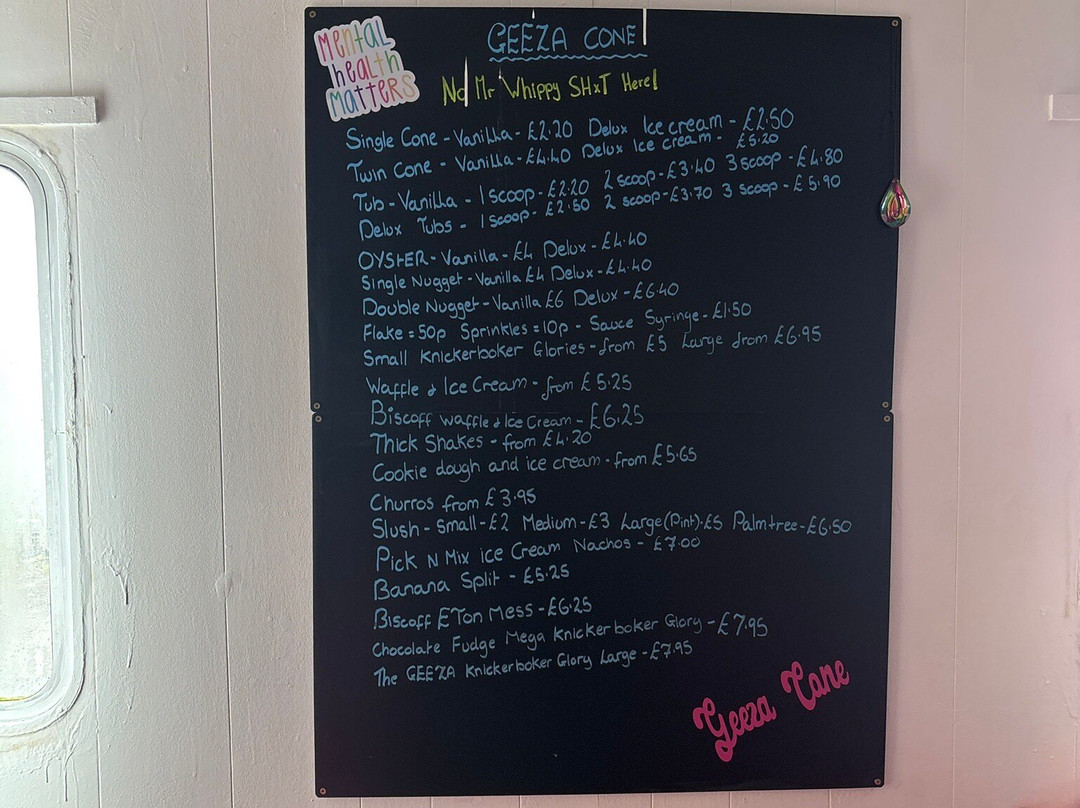 Mental
health
matters
GEEZA CONE
No Mr Whippy SHxT Here!
Single Cone - Vanilla - £2.20 Delux Ice cream - £2.50
Twin Cone - Vanilla - £4.40 Delux Ice cream - £5.20
Tub - Vanilla - 1 scoop - £2.20 2 scoop - £3.40 3 scoop - £4.80
Delux Tubs - 1 scoop - £2.50 2 scoop - £3.70 3 scoop - £5.90
OYSTER - Vanilla - £4 Delux - £4.40
Single Nugget - Vanilla £4 Delux - £4.40
Double Nugget - Vanilla £6 Delux - £6.40
Flake = 50p Sprinkles = 10p - Sauce Syringe - £1.50
Small Knickerboker Glories - from £5 Large from £6.95
Waffle & Ice Cream - from £5.25
Biscoff Waffle & Ice Cream - £6.25
Thick Shakes - from £4.20
Cookie dough and ice cream - from £5.65
Churros from £3.95
Slush - Small - £2 Medium - £3 Large (Pint) - £5 Palmtree - £6.50
Pick N Mix ice Cream Nachos - £7.00
Banana Split - £5.25
Biscoff ETon Mess - £6.25
Chocolate Fudge Mega Knickerboker Glory - £7.95
The GEEZA Knickerboker Glory Large - £7.95
Geeza Cone